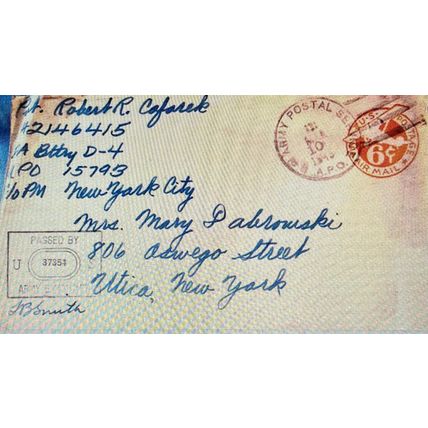 Pvt. Robert R. Caforek
42146415
A Bttry D-4
APO 15793
c/o PM New York City
Mrs. Mary Dabrowski
806 Oswego Street
Utica, New York
ARMY POSTAL SE
10
1943
A.P.O.
U.S. POSTAGE
6¢
VIA AIR MAIL
PASSED BY
U 37354
ARMY EXAMINER
Smith